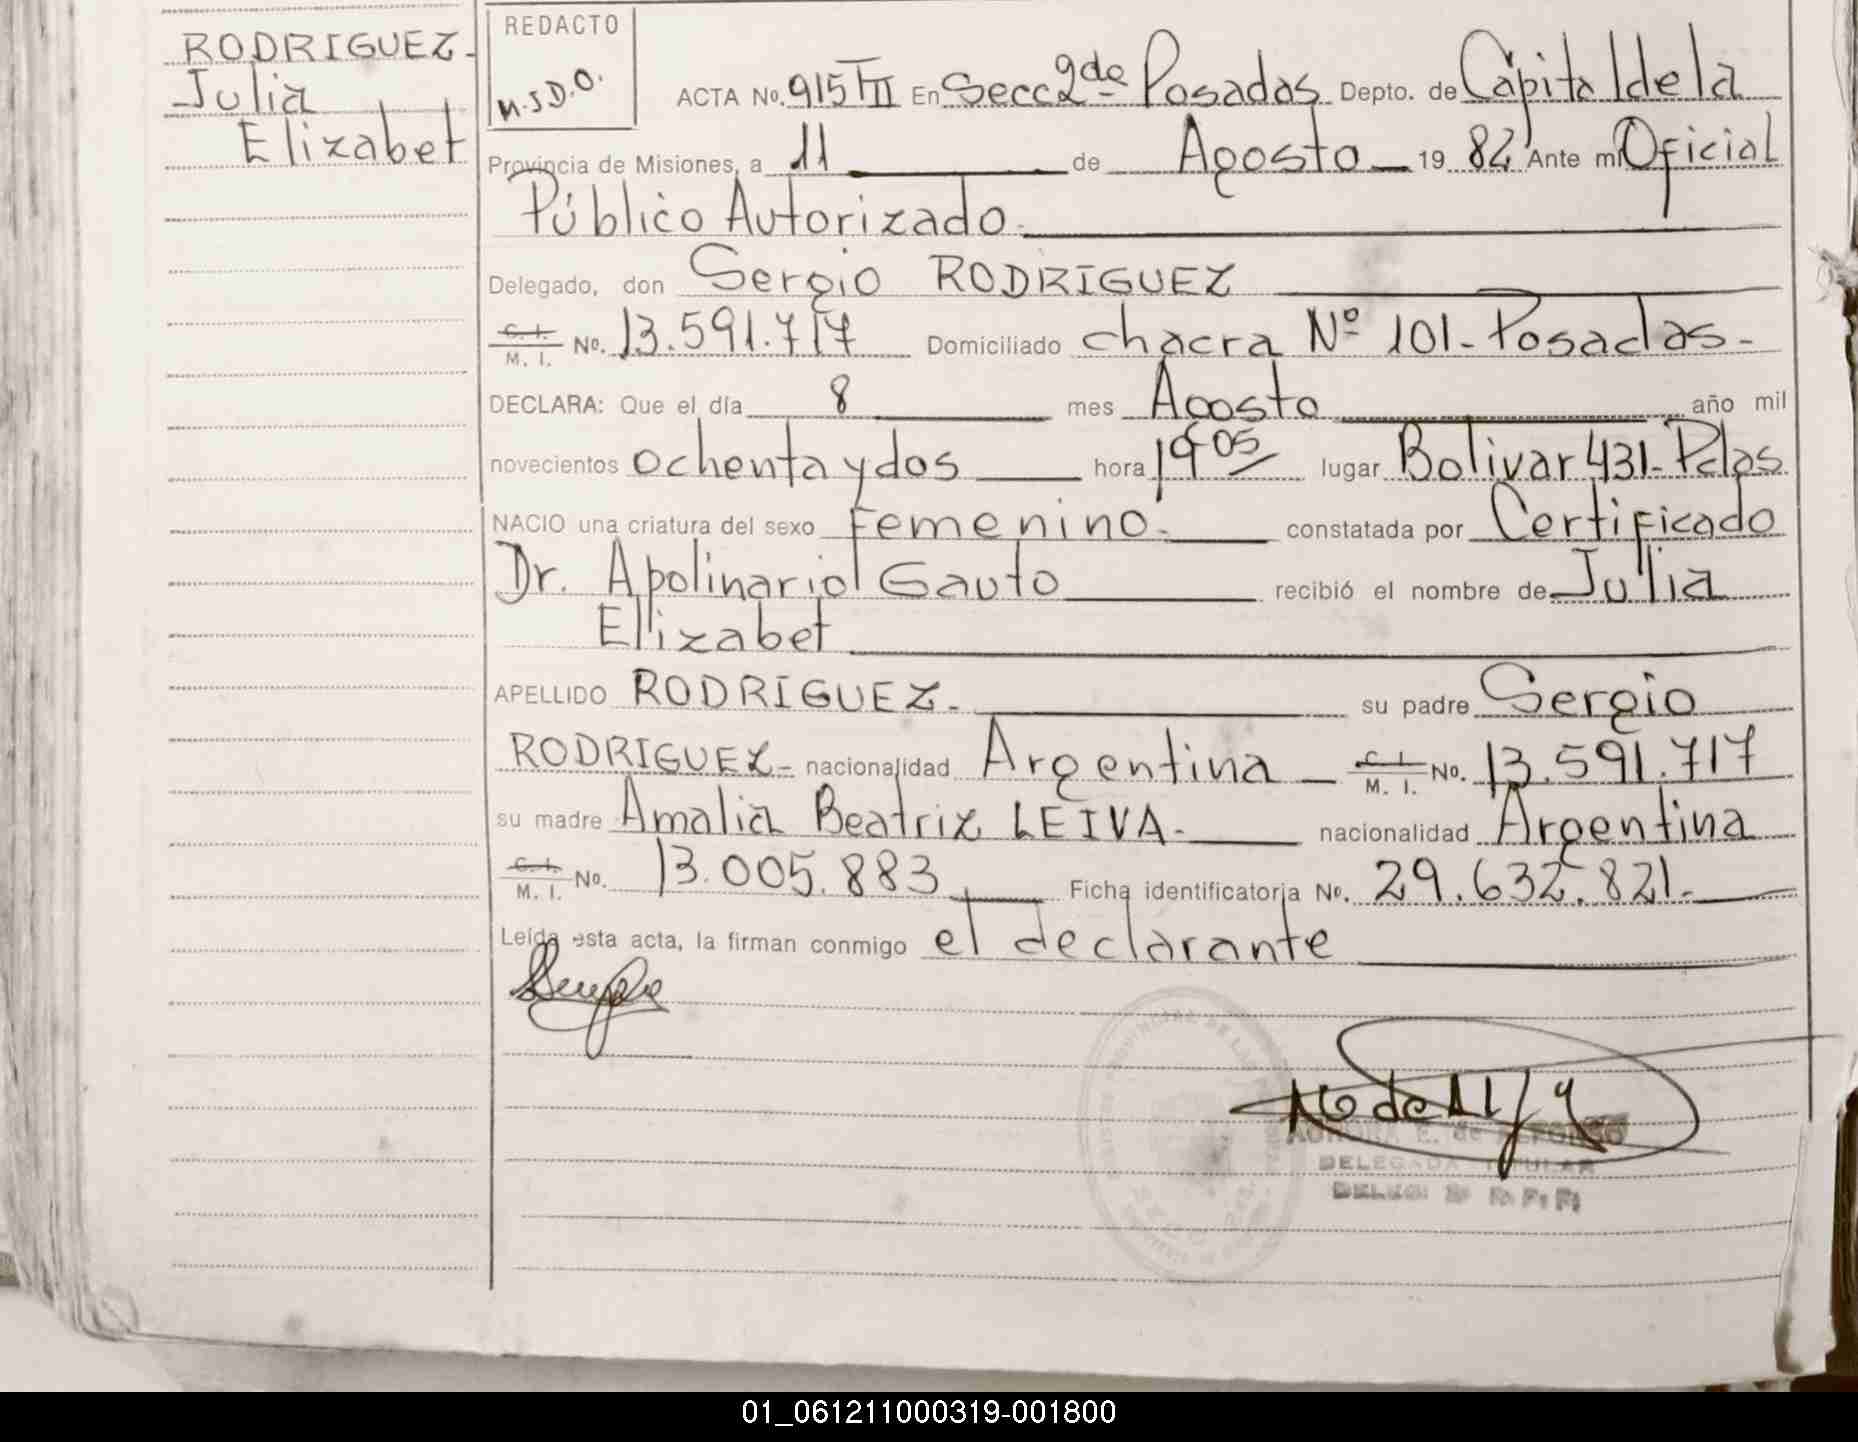 RODRIGUEZ-
Julia
Elizabet
REDACTO
M.S.D.O.
ACTA No. 915 TII En Secc 2da Posadas Depto. de Capital de la
Provincia de Misiones, a 11 de Agosto 19 82 Ante mi Oficial
Público Autorizado.
Delegado, don Sergio RODRIGUEZ
C. I. M. I. No. 13.591.717 Domiciliado chacra Nº 101- Posadas-
DECLARA: Que el día 8 mes Agosto año mil
novecientos ochenta y dos hora 19 05 lugar Bolivar 431- Pdas.
NACIO una criatura del sexo Femenino- constatada por Certificado
Dr. Apolinario Gauto recibió el nombre de Julia
Elizabet
APELLIDO RODRIGUEZ- su padre Sergio
RODRIGUEZ- nacionalidad Argentina C. I. M. I. No. 13.591.717
su madre Amalia Beatriz LEIVA- nacionalidad Argentina
C. I. M. I. No. 13.005.883 Ficha identificatoria No. 29.632.821-
Leída esta acta, la firman conmigo el declarante
E. de ALFONSO
DELEGADA TITULAR
01_061211000319-001800